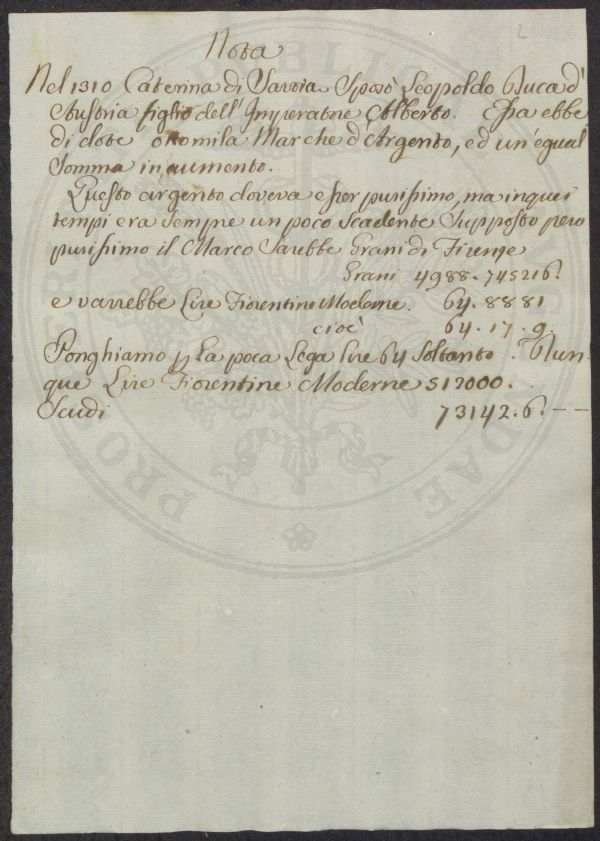 2
Nota
Nel 1310 Caterina di Savoia Sposò Leopoldo Duca d'
Austria figlio dell'Imperatore Alberto. Essa ebbe
di dote ottomila Marche d'Argento, ed un'egual
Somma in aumento.
Questo argento doveva esser purissimo, ma in quei
tempi era sempre un poco scadente Supposto però
purissimo il Marco Sarebbe Grani di Firenze
Grani 4988.745216.
e varrebbe Lire Fiorentine Moderne. 64.8881
cioè 64.17.9.
Ponghiamo p la poca Lega lire 64 Soltanto. Dun
que Lire Fiorentine Moderne 512000.
Scudi 73142.6.--